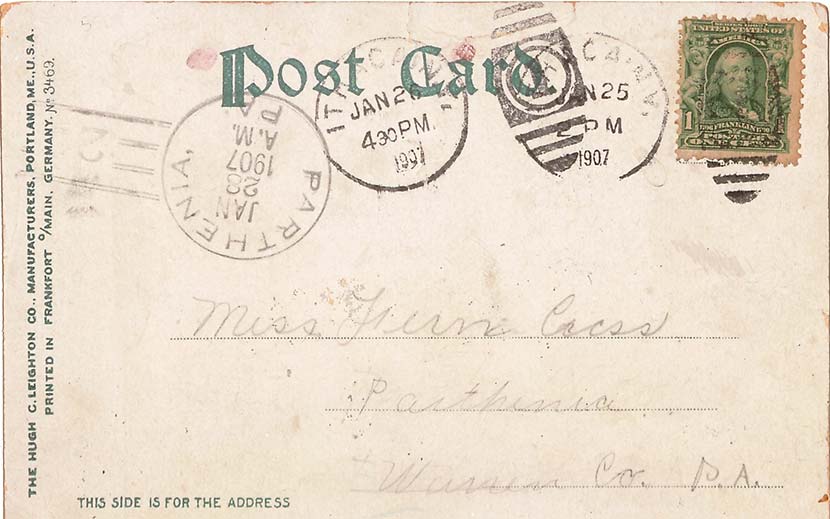 Post Card
ITHACA, N.Y.
JAN 26
4 30 PM
1907
ITHACA, N.Y.
JAN 25
2 PM
1907
UNITED STATES OF AMERICA
1
FRANKLIN
ONE CENT
PARTHENIA,
PA.
JAN
28
A.M.
1907
Miss Fern
Parthenia
Warren Co. P.A.
THIS SIDE IS FOR THE ADDRESS
THE HUGH C. LEIGHTON CO., MANUFACTURERS, PORTLAND, ME., U.S.A.
PRINTED IN FRANKFORT o/MAIN, GERMANY. No 3469.